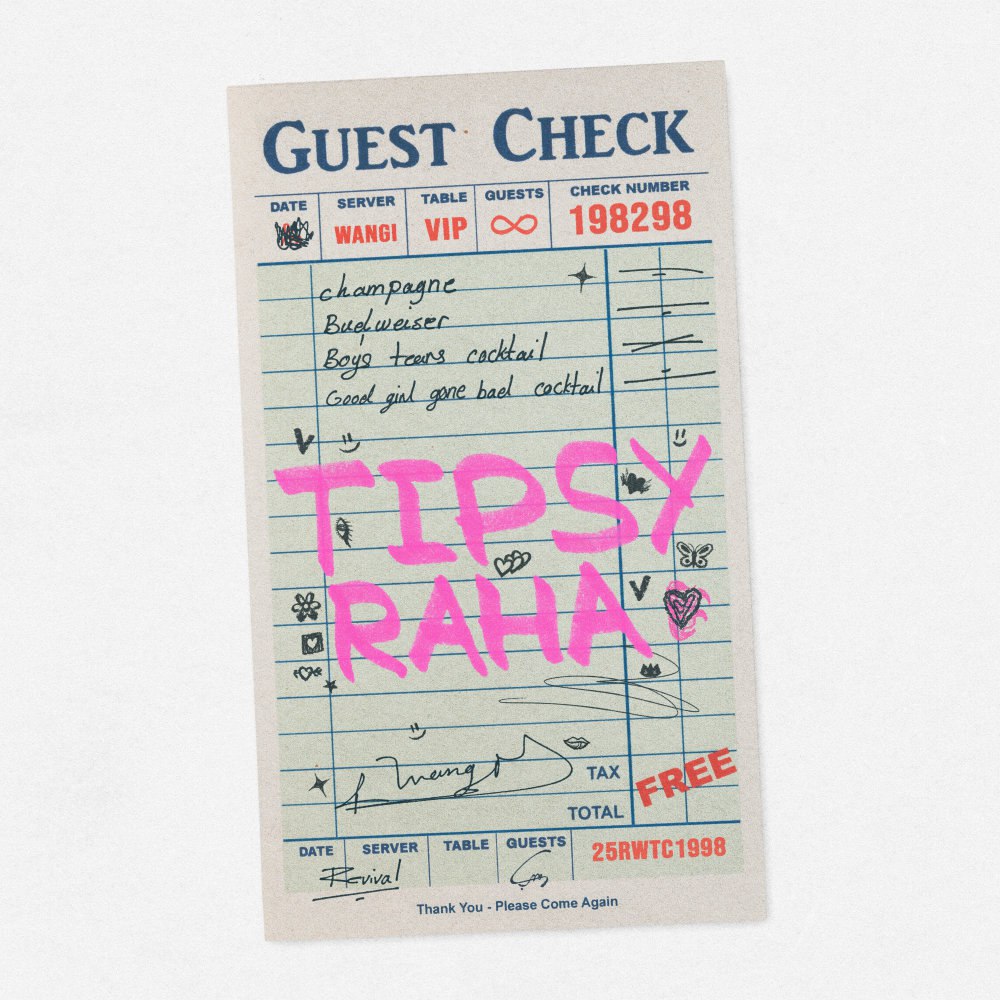 GUEST CHECK
DATE SERVER TABLE GUESTS CHECK NUMBER
WANGI VIP ∞ 198298
champagne
Budweiser
Boys tears cocktail
Good girl gone bad cocktail
V
V
TIPSY
RAHA
TAX
FREE
TOTAL
DATE SERVER TABLE GUESTS 25RWTC1998
Revival
Thank You - Please Come Again